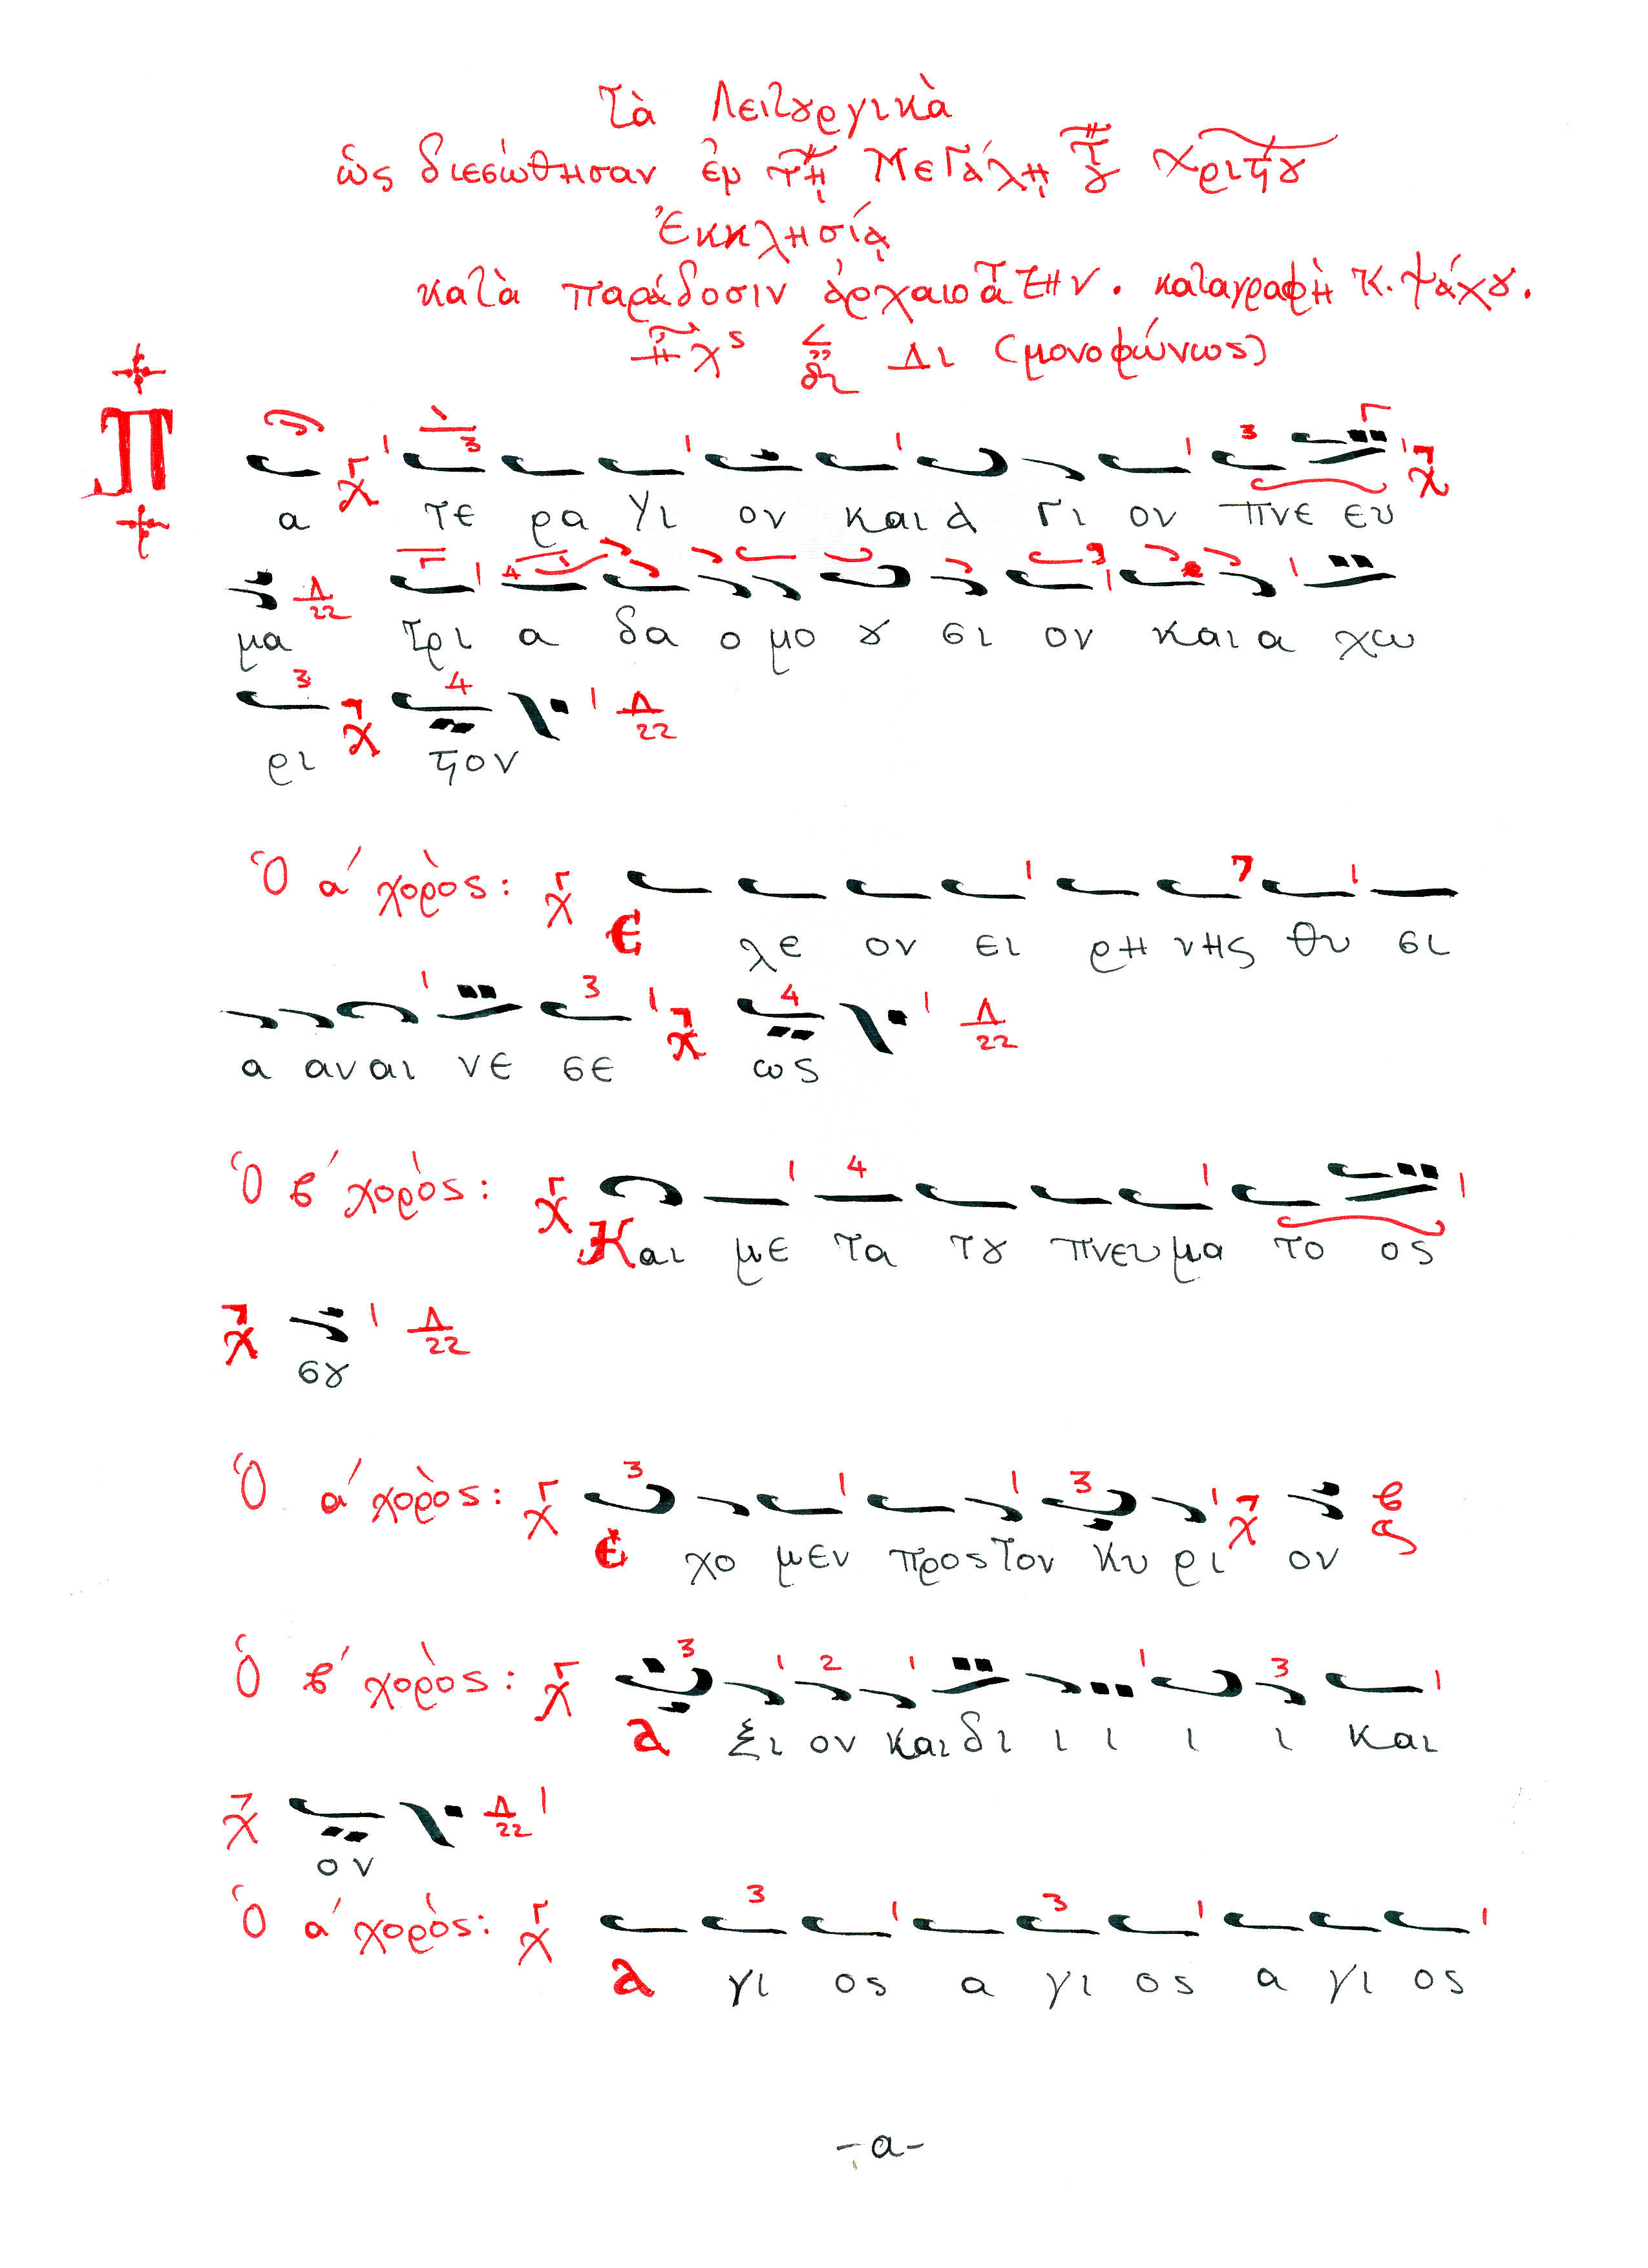 Τὰ Λειτȣργικὰ
ὡς διεσώθησαν ἐμ τῇ Μεγάλῃ τȣ͂ Χριϛȣ͂
Ἐκκλησίᾳ
κατὰ παράδοσιν ἀρχαιοτάτην. καταγραφὴ Κ. Ψάχȣ.
ἦχς Δι (μονοφώνως)
Π α τε ρα Υι ον και α γι ον πνε ευ
μα τρι α δα ο μο ȣ σι ον και α χω
ρι ϛον
Ὁ α' χορὸς: Ε λε ον ει ρη νης θυ σι
α αν αι νε σε ως
Ὁ β' χορὸς: Και με τα τȣ πνευ μα το ος
σȣ
Ὁ α' χορὸς: Ε χο μεν προς τον κυ ρι ον
Ὁ β' χορὸς: α ξι ον και δι ι ι ι ι και
ον
Ὁ α' χορὸς: α γι ος α γι ος α γι ος
-α-